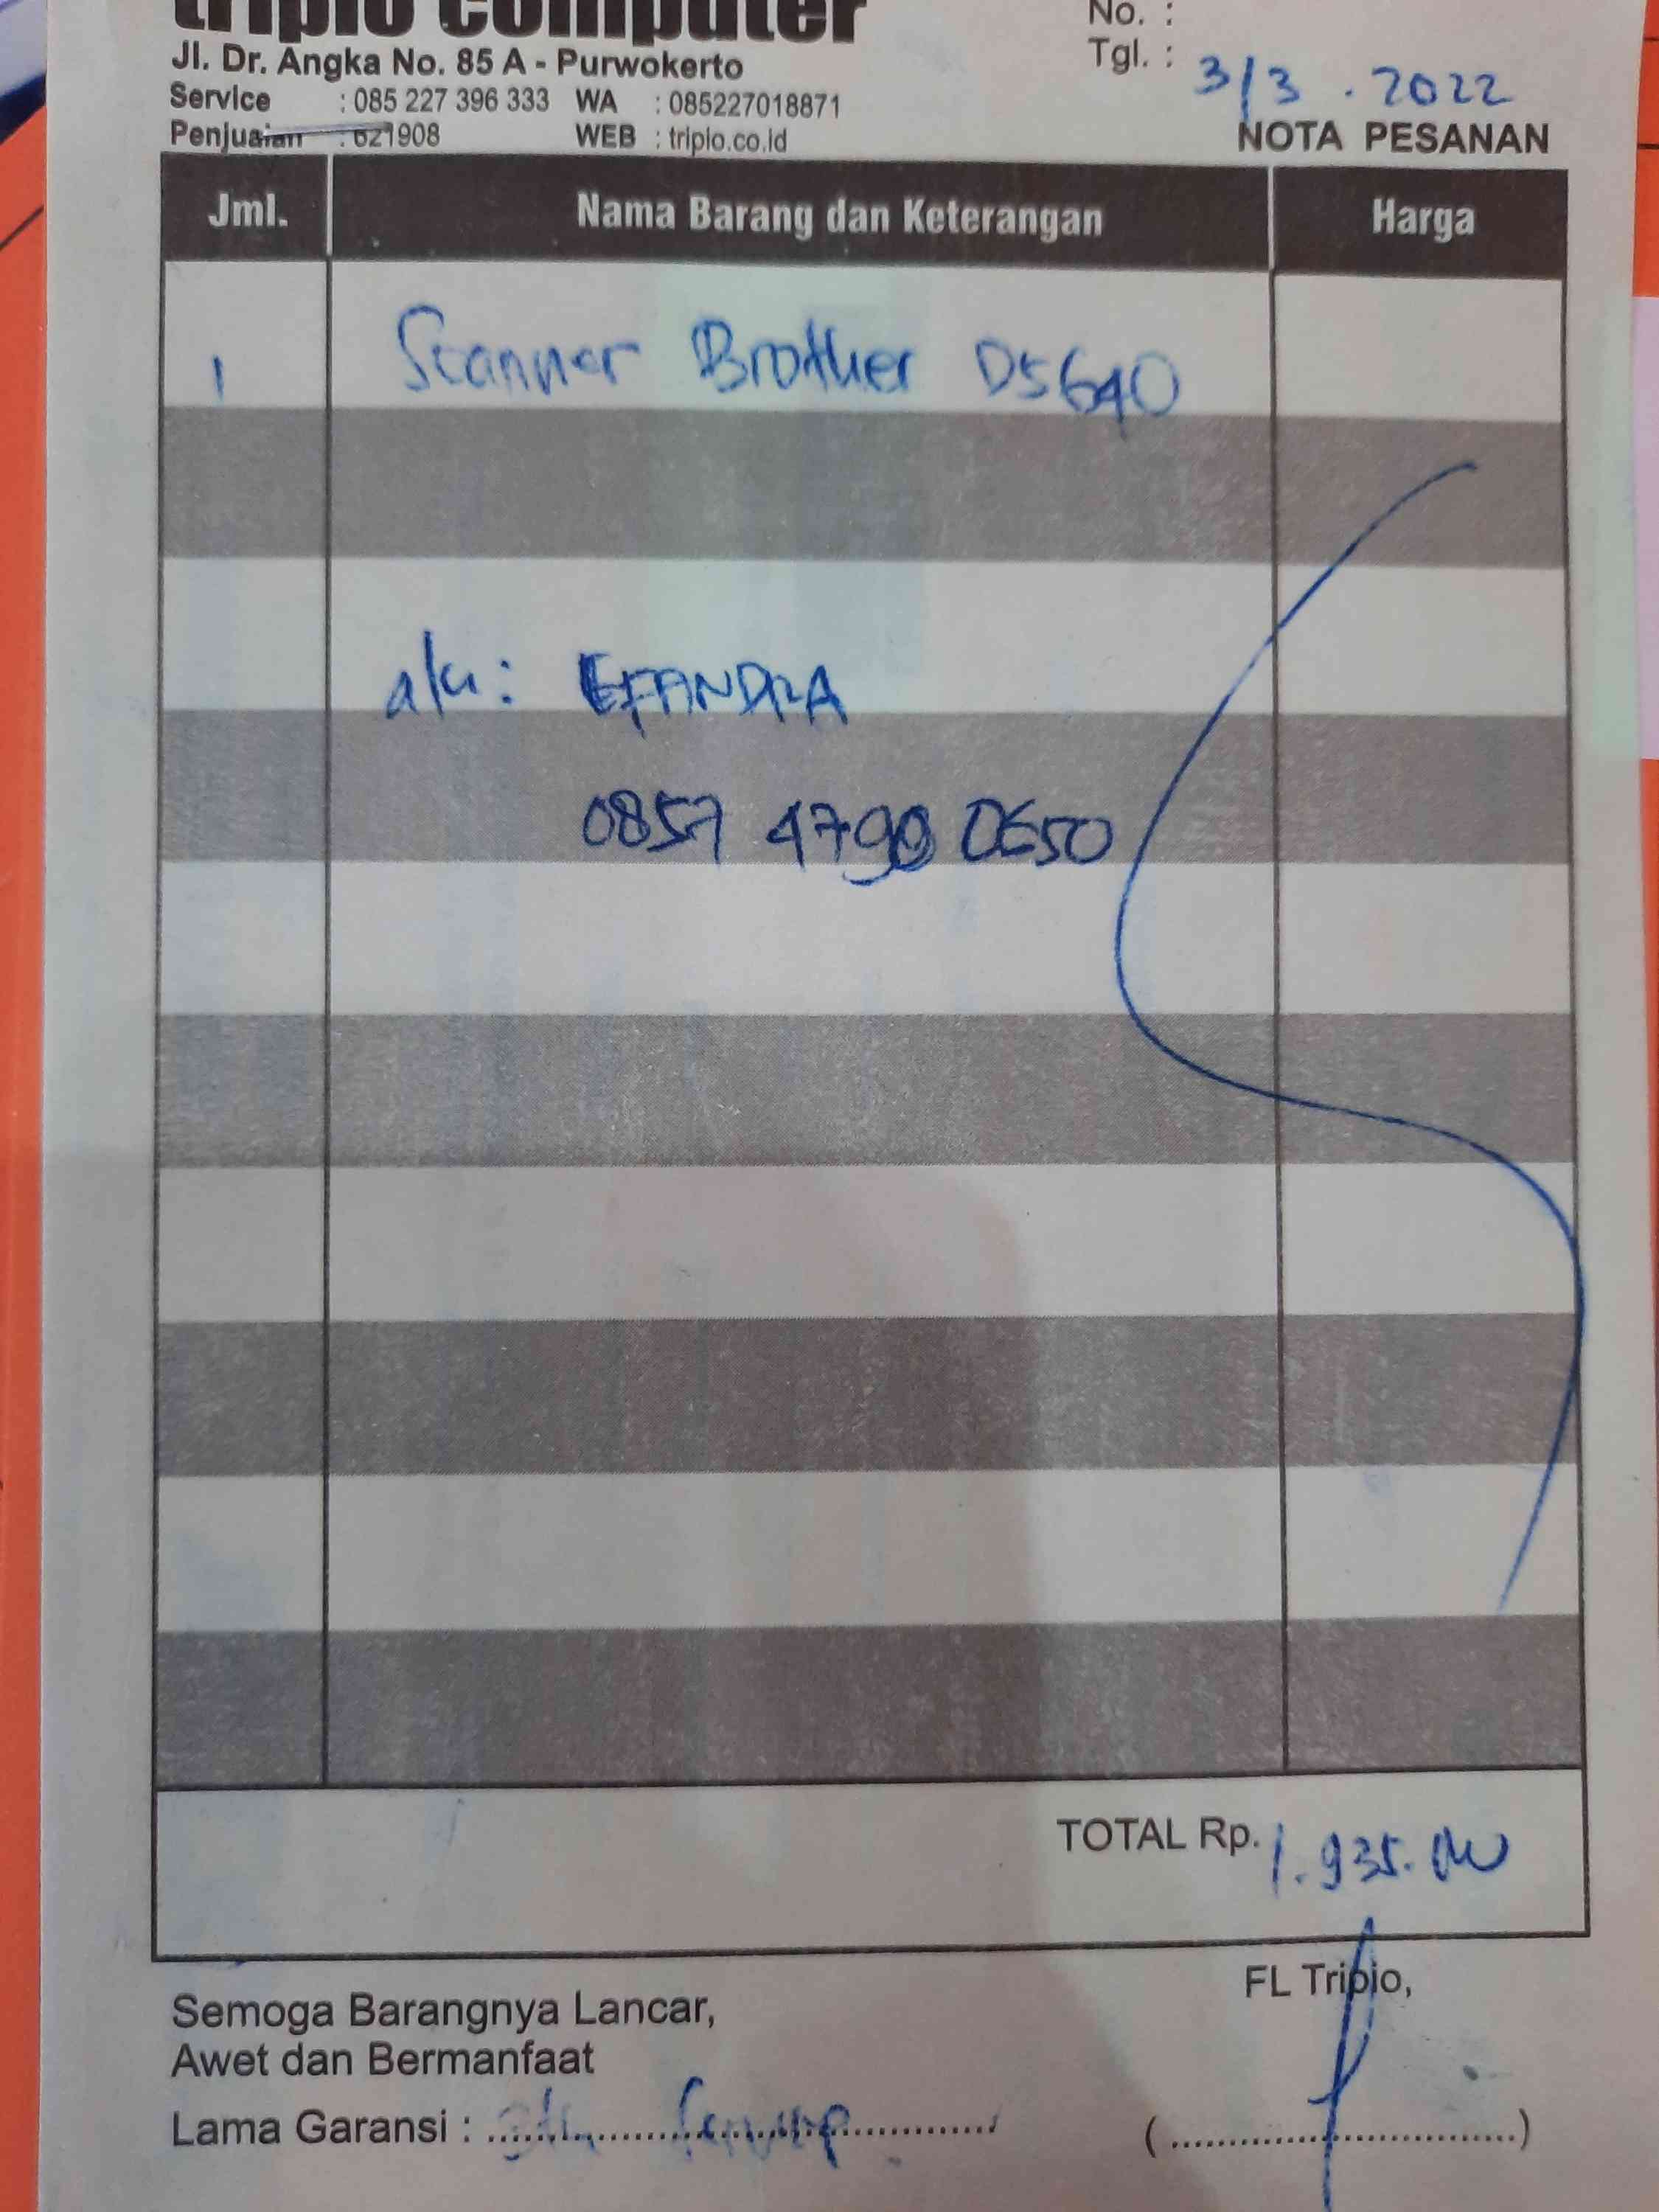 triplo computer
Jl. Dr. Angka No. 85 A - Purwokerto
Service : 085 227 396 333 WA : 085227018871
Penjualan : 621908 WEB : triplo.co.id
No. :
Tgl. : 3/3 . 2022
NOTA PESANAN
Jml. Nama Barang dan Keterangan Harga
1 Scanner Brother DS640
EFANDRA
0857 4790 0650
TOTAL Rp. 1.935.000
FL Triplo,
Semoga Barangnya Lancar,
Awet dan Bermanfaat
Lama Garansi :
(..............................)